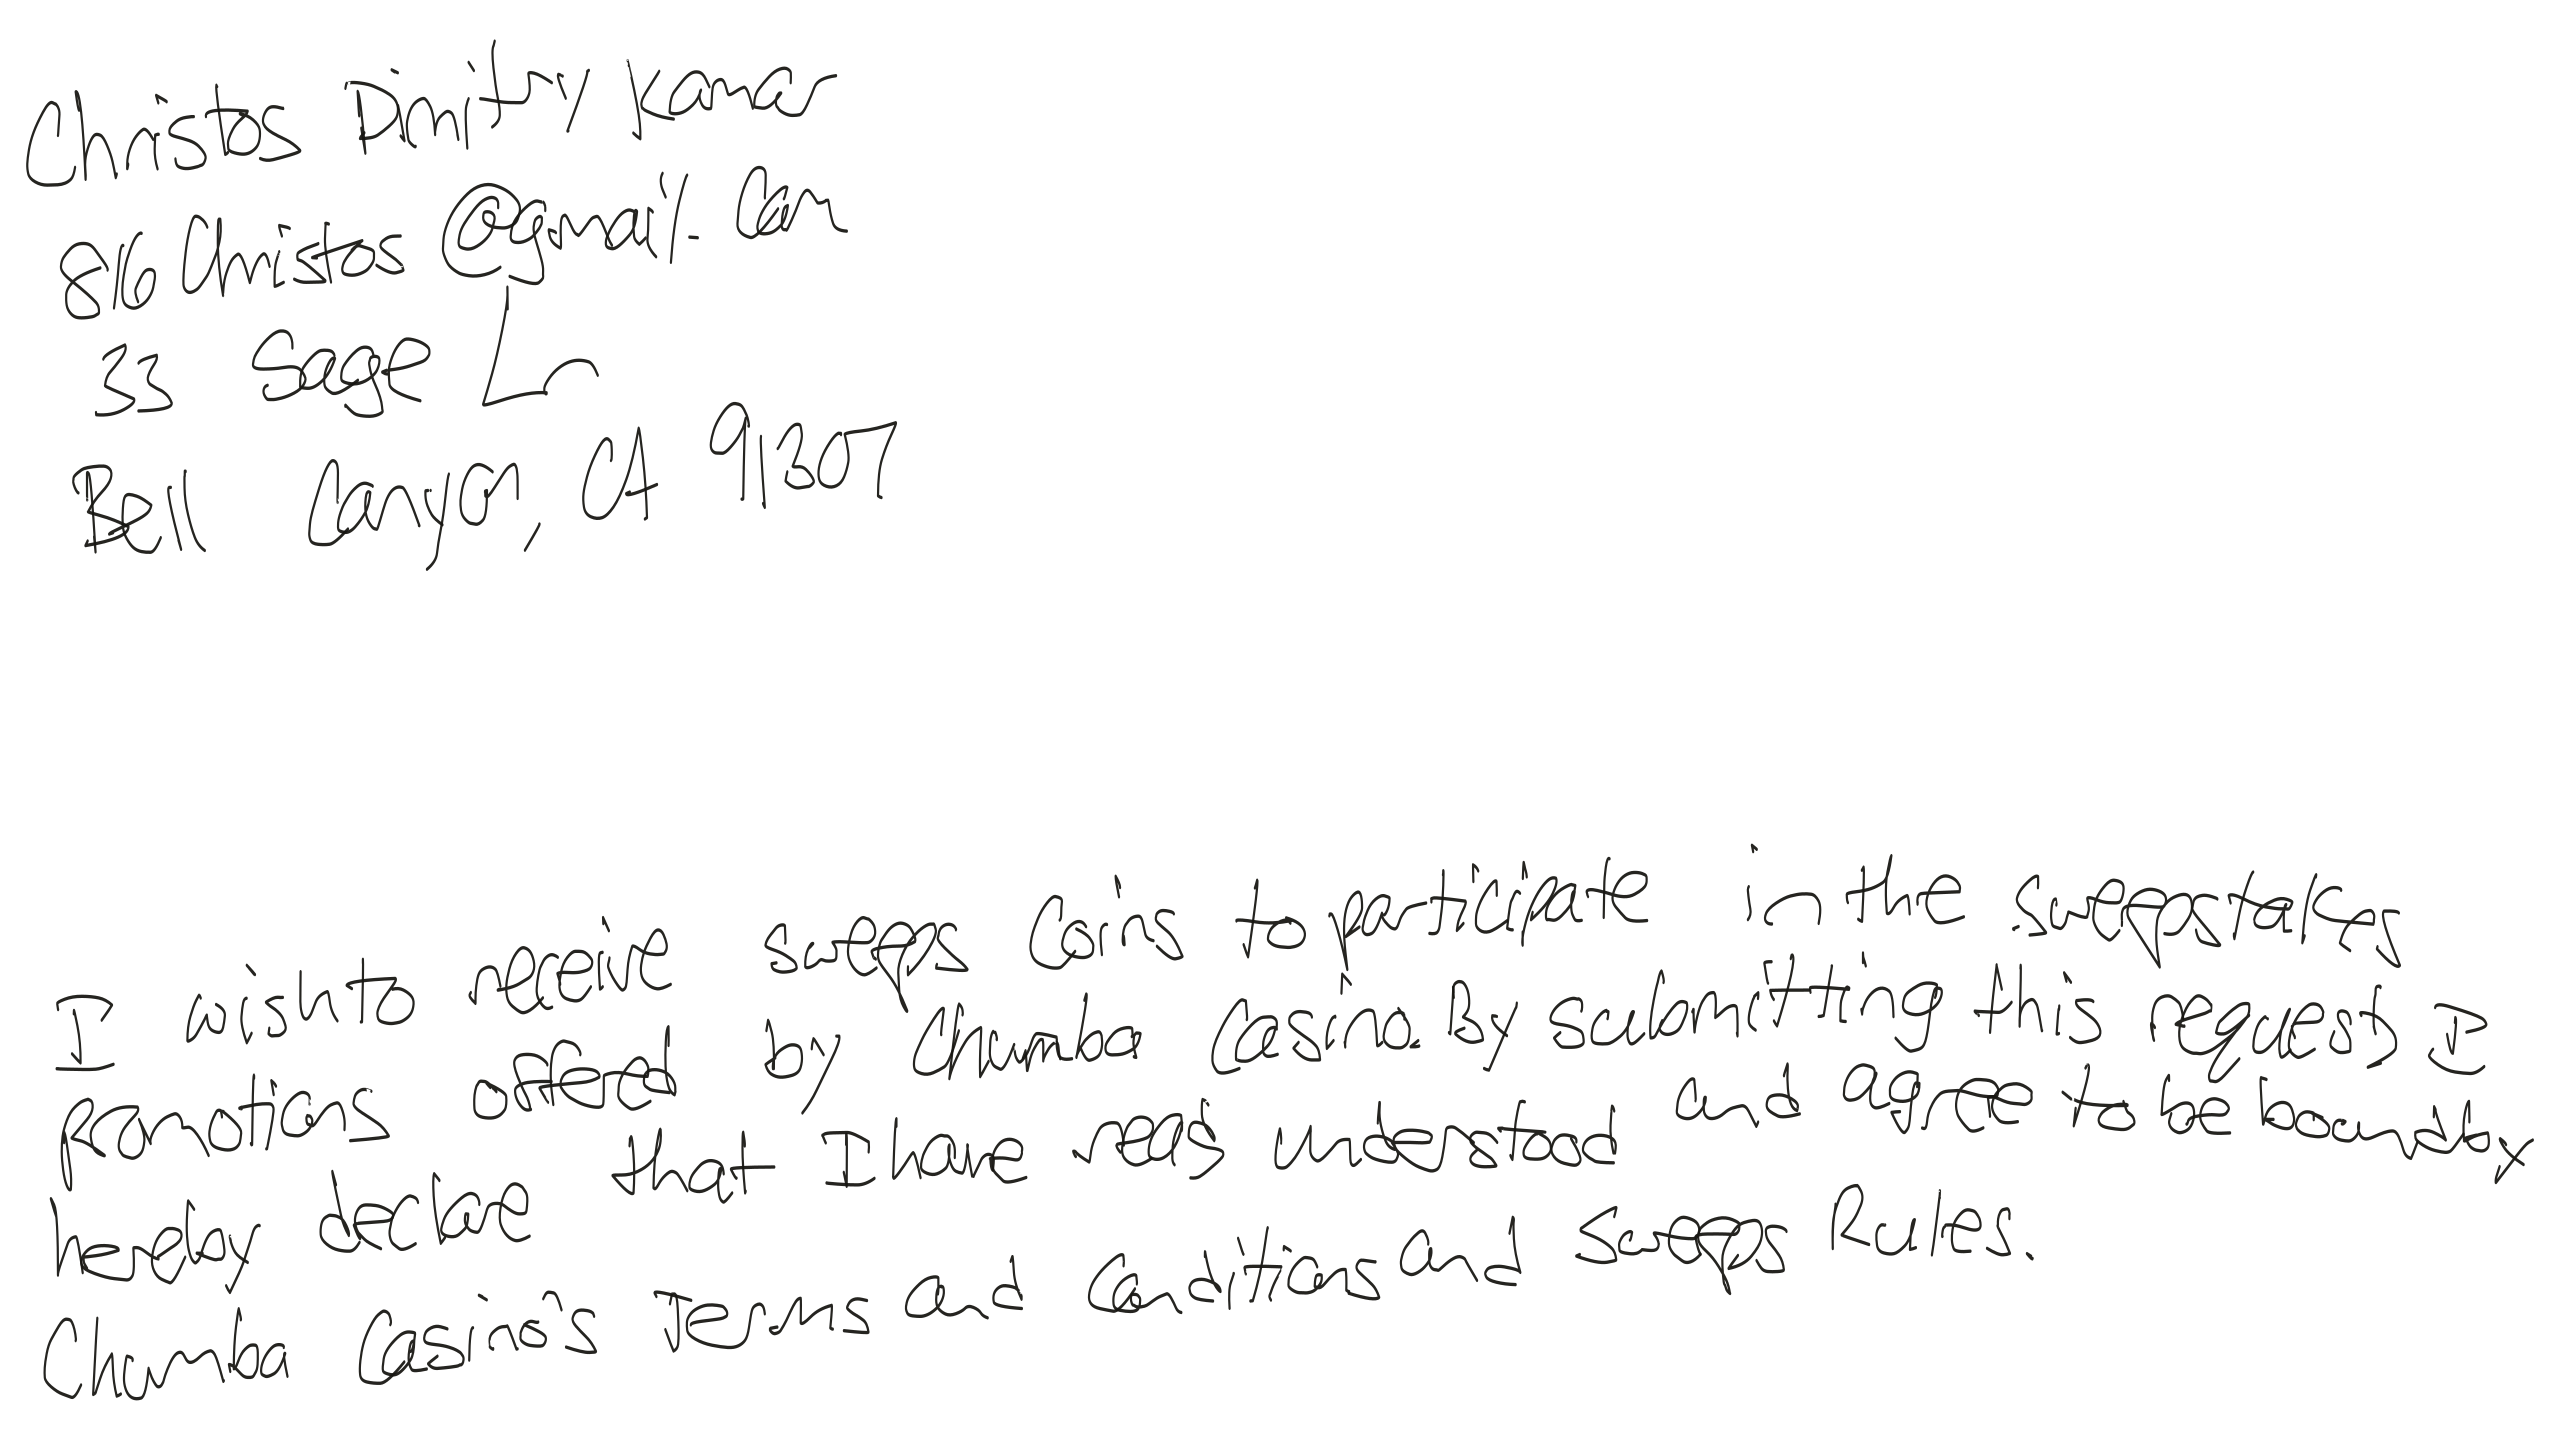 Christos Dimitry Kamar
816Christos@gmail.com
33 Sage Ln
Bell Canyon, CA 91307
I wish to receive sweeps Coins to participate in the sweepstakes
promotions offered by Chumba Casino. By submitting this request, I
hereby declare that I have read, understood and agree to be bound by
Chumba Casino's Terms and Conditions and Sweeps Rules.